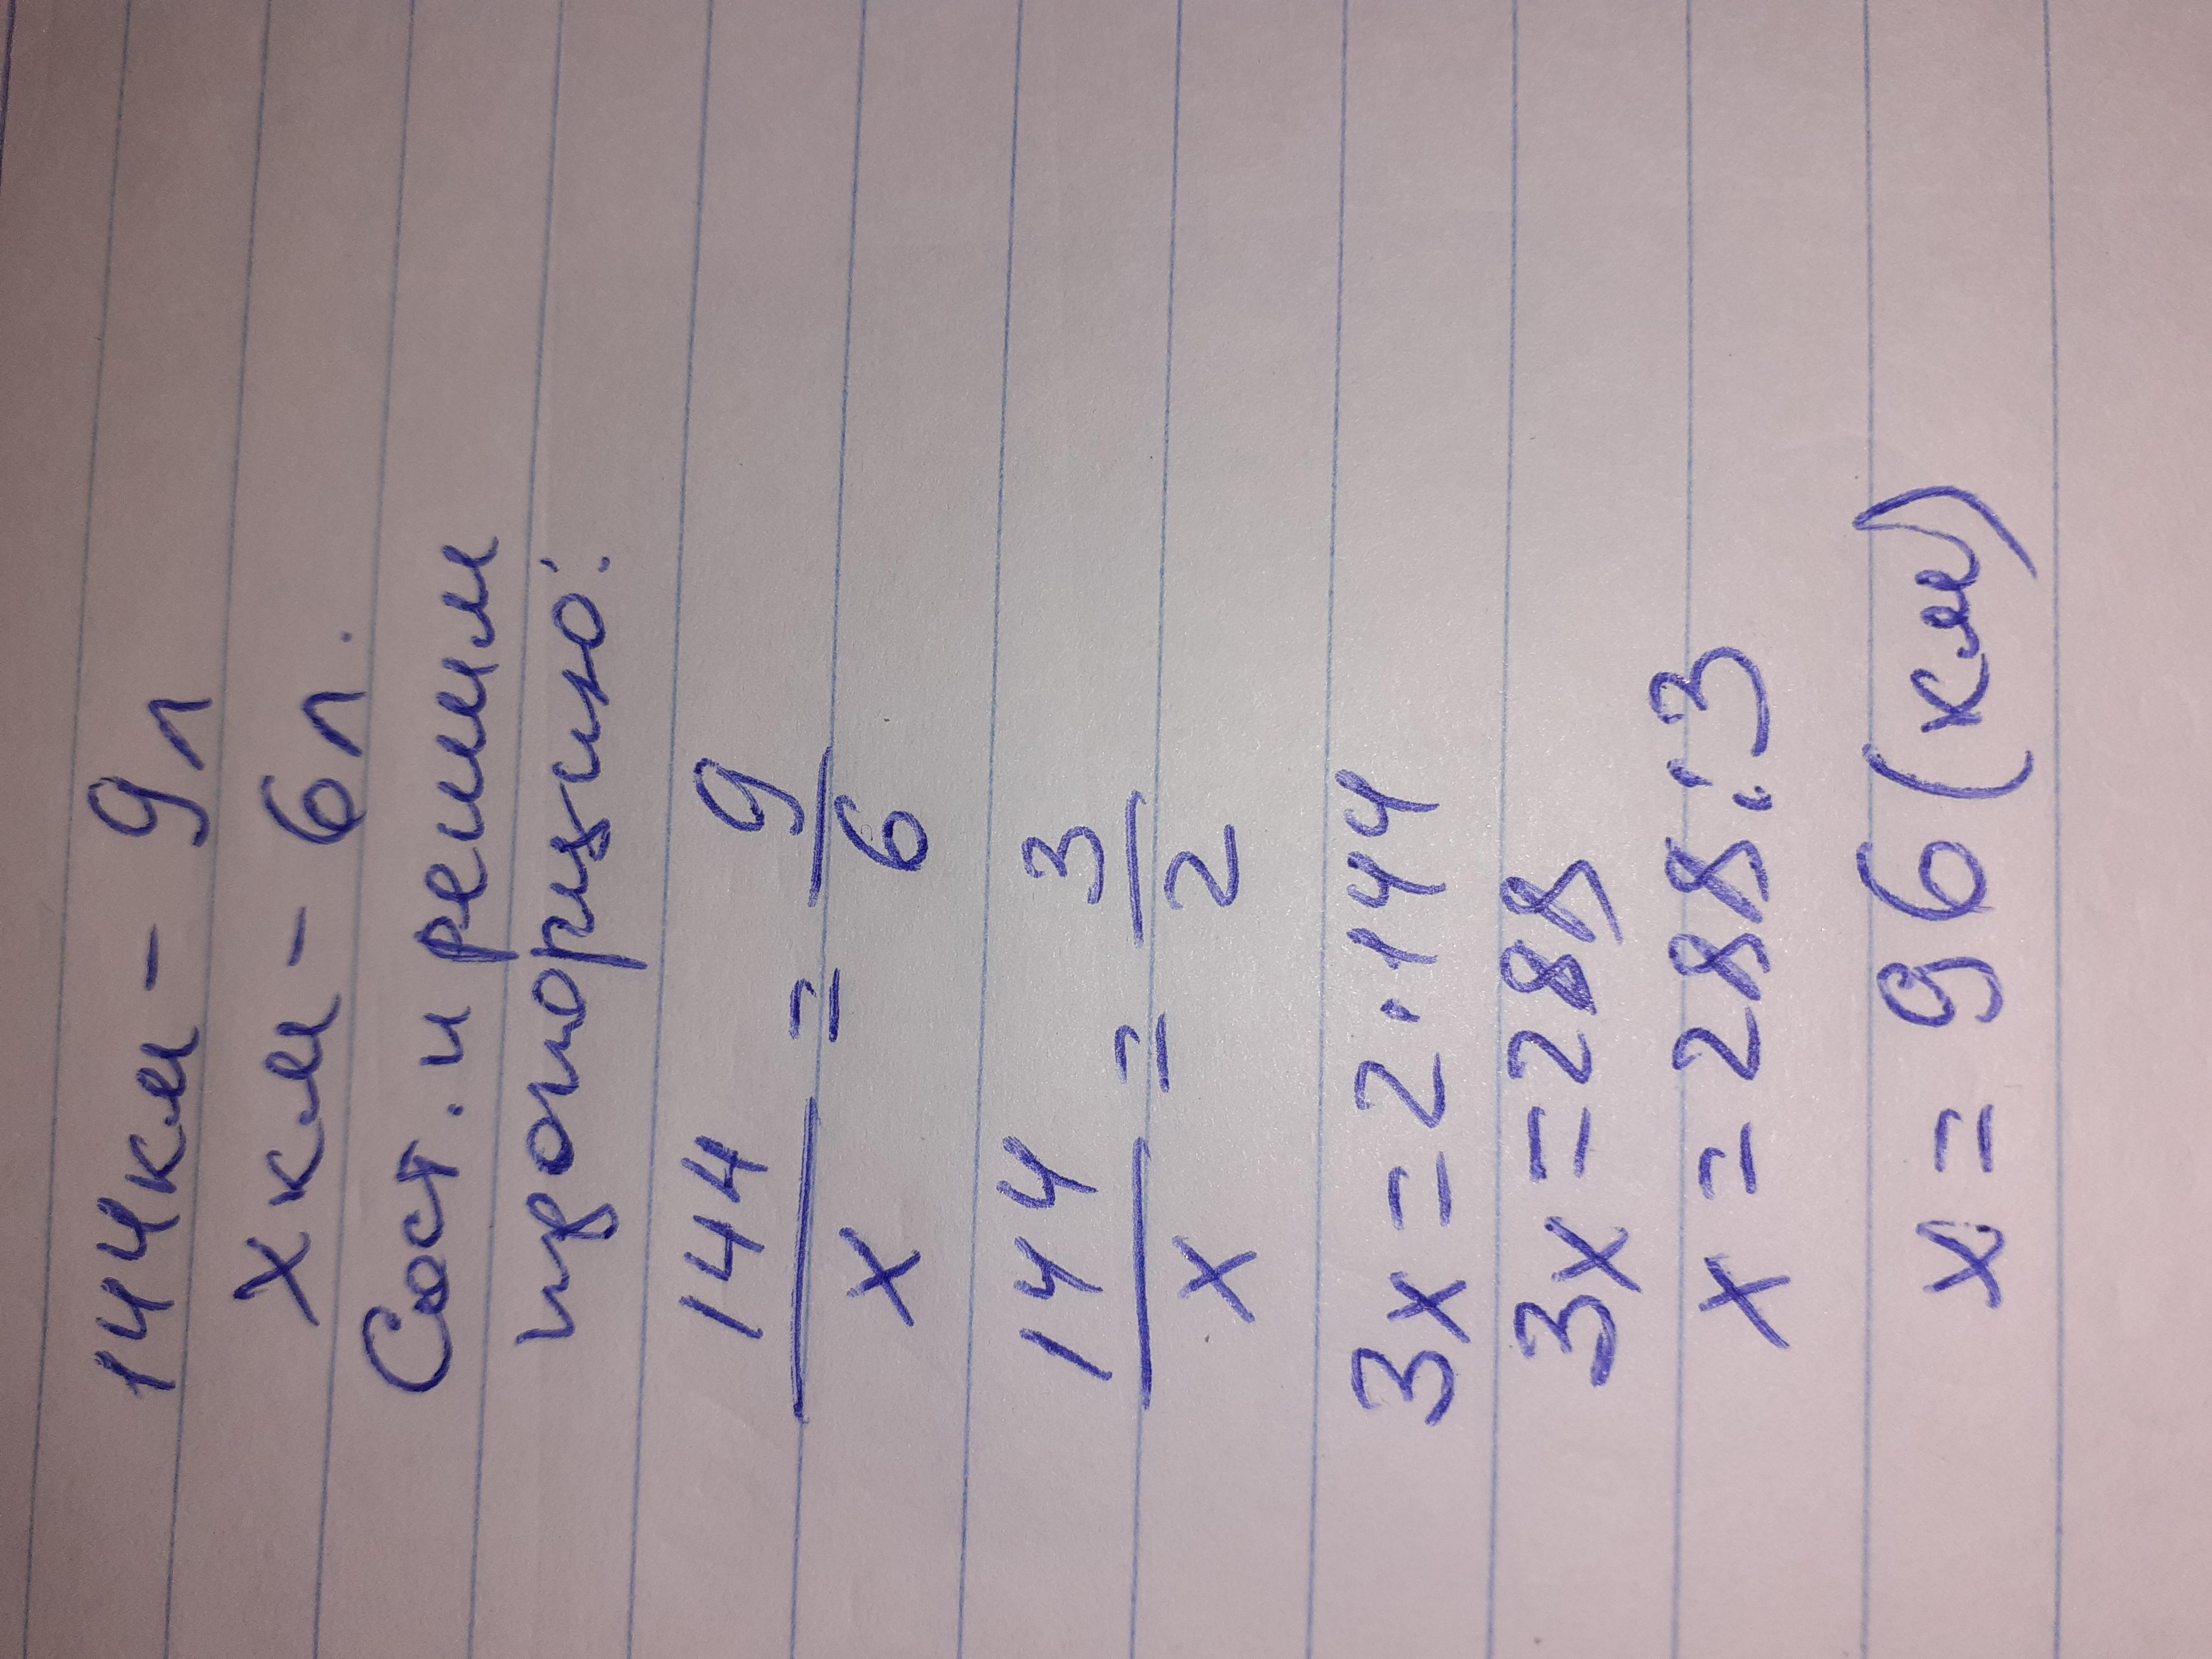 144км - 9л
х км - 6л.
Сост. и решим
пропорцию:
144/х = 9/6
144/х = 3/2
3х = 2·144
3х = 288
х = 288:3
х = 96 (км)